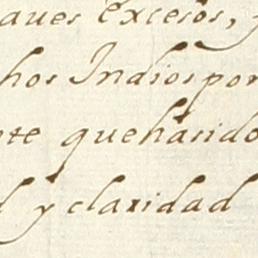 aues Excesos, y
hos Indios por
nte que hásido
d y claridad